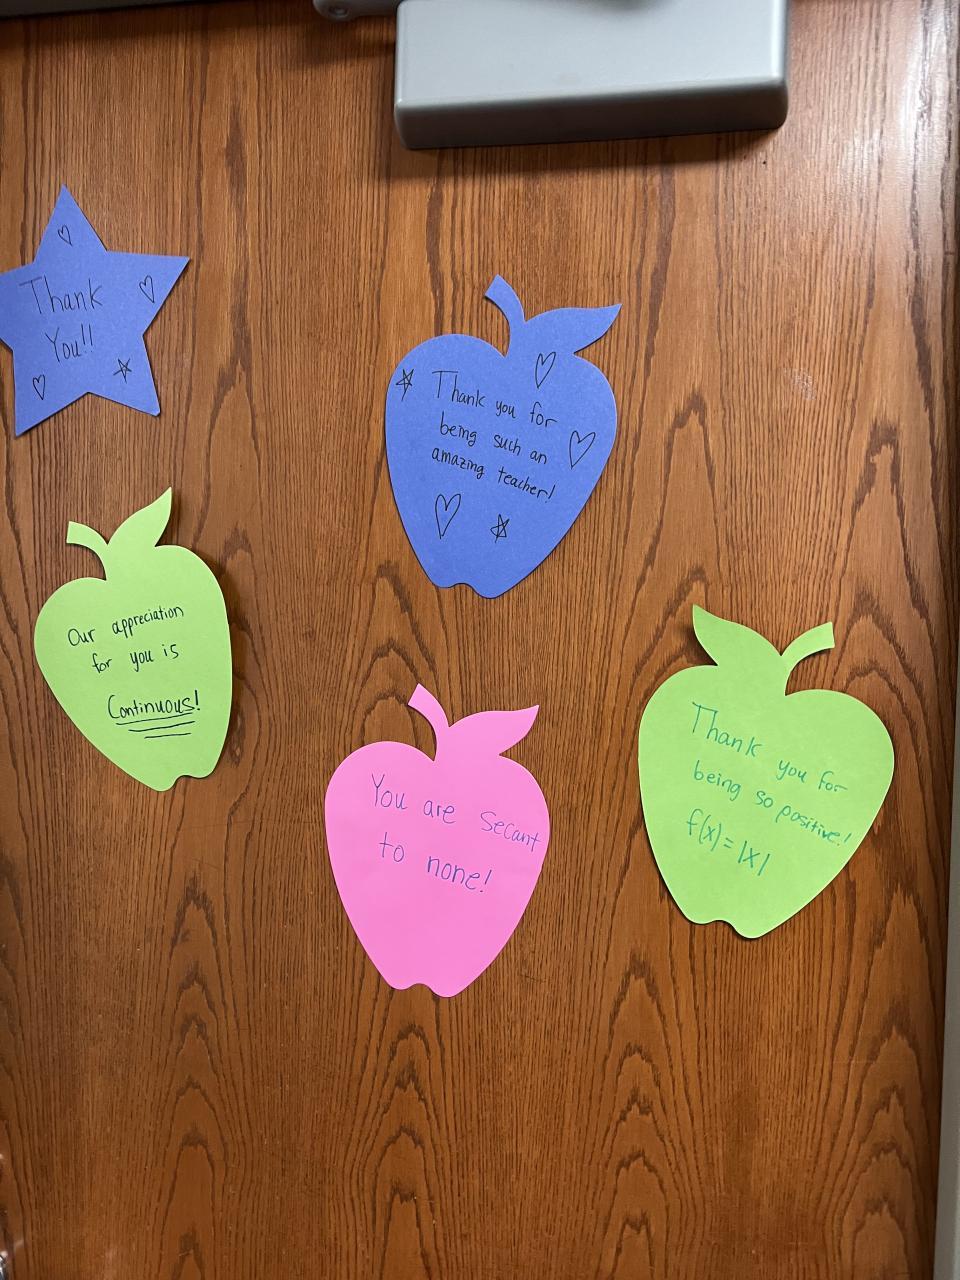 Thank
You!!
Thank you for
being such an
amazing teacher!
Our appreciation
for you is
Continuous!
You are Secant
to none!
Thank you for
being so positive!
f(x)=|x|